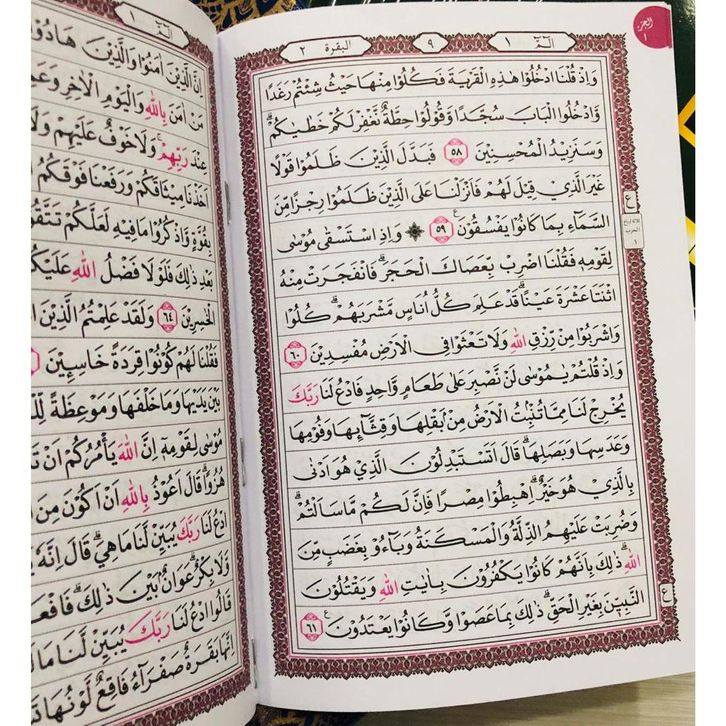 الجزء
١
الٓمّٓ ١
٩
البقرة ٢
وَاِذْ قُلْنَا ادْخُلُوْا هٰذِهِ الْقَرْيَةَ فَكُلُوْا مِنْهَا حَيْثُ شِئْتُمْ رَغَدًا
وَّادْخُلُوا الْبَابَ سُجَّدًا وَّقُوْلُوْا حِطَّةٌ نَّغْفِرْ لَكُمْ خَطٰيٰكُمْ ۗ
وَسَنَزِيْدُ الْمُحْسِنِيْنَ ٥٨ فَبَدَّلَ الَّذِيْنَ ظَلَمُوْا قَوْلًا
غَيْرَ الَّذِيْ قِيْلَ لَهُمْ فَاَنْزَلْنَا عَلَى الَّذِيْنَ ظَلَمُوْا رِجْزًا مِّنَ
السَّمَآءِ بِمَا كَانُوْا يَفْسُقُوْنَ ࣖ ٥٩ ۞ وَاِذِ اسْتَسْقٰى مُوْسٰى
لِقَوْمِهٖ فَقُلْنَا اضْرِبْ بِّعَصَاكَ الْحَجَرَۗ فَانْفَجَرَتْ مِنْهُ
اثْنَتَا عَشْرَةَ عَيْنًا ۗ قَدْ عَلِمَ كُلُّ اُنَاسٍ مَّشْرَبَهُمْ ۗ كُلُوْا
وَاشْرَبُوْا مِنْ رِّزْقِ اللّٰهِ وَلَا تَعْثَوْا فِى الْاَرْضِ مُفْسِدِيْنَ ٦٠
وَاِذْ قُلْتُمْ يٰمُوْسٰى لَنْ نَّصْبِرَ عَلٰى طَعَامٍ وَّاحِدٍ فَادْعُ لَنَا رَبَّكَ
يُخْرِجْ لَنَا مِمَّا تُنْۢبِتُ الْاَرْضُ مِنْۢ بَقْلِهَا وَقِثَّآئِهَا وَفُوْمِهَا
وَعَدَسِهَا وَبَصَلِهَا ۗ قَالَ اَتَسْتَبْدِلُوْنَ الَّذِيْ هُوَ اَدْنٰى
بِالَّذِيْ هُوَ خَيْرٌ ۗ اِهْبِطُوْا مِصْرًا فَاِنَّ لَكُمْ مَّا سَاَلْتُمْ ۗ
وَضُرِبَتْ عَلَيْهِمُ الذِّلَّةُ وَالْمَسْكَنَةُ وَبَآءُوْ بِغَضَبٍ مِّنَ
اللّٰهِ ۗ ذٰلِكَ بِاَنَّهُمْ كَانُوْا يَكْفُرُوْنَ بِاٰيٰتِ اللّٰهِ وَيَقْتُلُوْنَ
النَّبِيّٖنَ بِغَيْرِ الْحَقِّ ۗ ذٰلِكَ بِمَا عَصَوْا وَّكَانُوْا يَعْتَدُوْنَ ࣖ ٦١
ع
ع
الٓمّٓ ١
اِنَّ الَّذِيْنَ اٰمَنُوْا وَالَّذِيْنَ هَادُوْا
مَنْ اٰمَنَ بِاللّٰهِ وَالْيَوْمِ الْاٰخِرِ وَعَمِ
عِنْدَ رَبِّهِمْ ۚ وَلَا خَوْفٌ عَلَيْهِمْ وَلَا
اَخَذْنَا مِيْثَاقَكُمْ وَرَفَعْنَا فَوْقَكُمُ
بِقُوَّةٍ وَّاذْكُرُوْا مَا فِيْهِ لَعَلَّكُمْ تَتَّقُوْ
بَعْدِ ذٰلِكَ فَلَوْلَا فَضْلُ اللّٰهِ عَلَيْكُ
الْخٰسِرِيْنَ ٦٤ وَلَقَدْ عَلِمْتُمُ الَّذِيْنَ ا
فَقُلْنَا لَهُمْ كُوْنُوْا قِرَدَةً خَاسِـِٕيْنَ
بَيْنَ يَدَيْهَا وَمَا خَلْفَهَا وَمَوْعِظَةً لِّلْ
مُوْسٰى لِقَوْمِهٖٓ اِنَّ اللّٰهَ يَأْمُرُكُمْ اَنْ تَ
هُزُوًا ۗ قَالَ اَعُوْذُ بِاللّٰهِ اَنْ اَكُوْنَ مِنَ
ادْعُ لَنَا رَبَّكَ يُبَيِّنْ لَّنَا مَا هِيَ ۗ قَالَ اِنَّهٗ
وَّلَا بِكْرٌ ۗ عَوَانٌۢ بَيْنَ ذٰلِكَ ۗ فَافْعَ
قَالُوا ادْعُ لَنَا رَبَّكَ يُبَيِّنْ لَّنَا مَا
اِنَّهَا بَقَرَةٌ صَفْرَآءُ فَاقِعٌ لَّوْنُهَا تَ